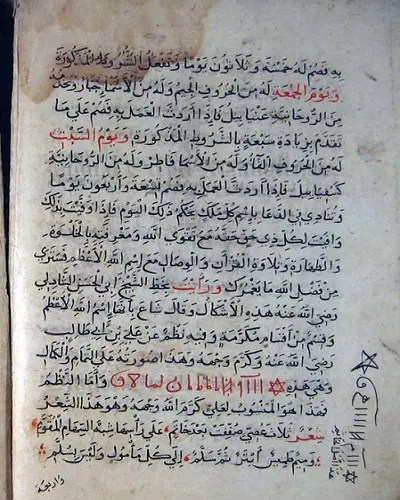 به فصم له خمسة وثلاثون يوما وتفعل الشروط المذكورة
ويوم الجمعة له من الحروف الجيم وله من الأسما جبار وحده
من الروحانية عنيابيل فإذا أردت العمل به فصم على ما
تقدم بزيادة سبعة بالشروط المذكورة ويوم السبت
له من الحروف الفا وله من الأسما فاطر وله من الروحانية
كسفيابيل فإذا أردت العمل به فصم تسعة وأربعون يوما
وتنادي في الدعا باسم كل ملك يحكم ذلك اليوم فإذا وفيت بذلك
وافيت لكل ذي حق حقه مع تقوى الله ومعرفته بالخلوة
والطهارة وتلاوة القرآن والوصال مع اسم الله الأعظم فسترى
من فضل الله ما يغمرك ورأيت بخط الشيخ أبي الحسن الشاذلي
رضي الله عنه هذه الأشكال وقال شاع بأنها اسم الله الأعظم
وقسم من أقسام مكرمة وفيه نظم عن علي بن أبي طالب
رضي الله عنه وكرم وجهه وهذا صورته على التمام والكمال
وهي هذه وأما النظم
فهذا هو المنسوب لعلي كرم الله وجهه وهو هذا الشعر
شعر ثلاث عصي صففت بعد خاتم على رأسها شبه السهام المقوم
وميم طميس أبتر ثم سلم إلى كل مأمول وليس بسلم